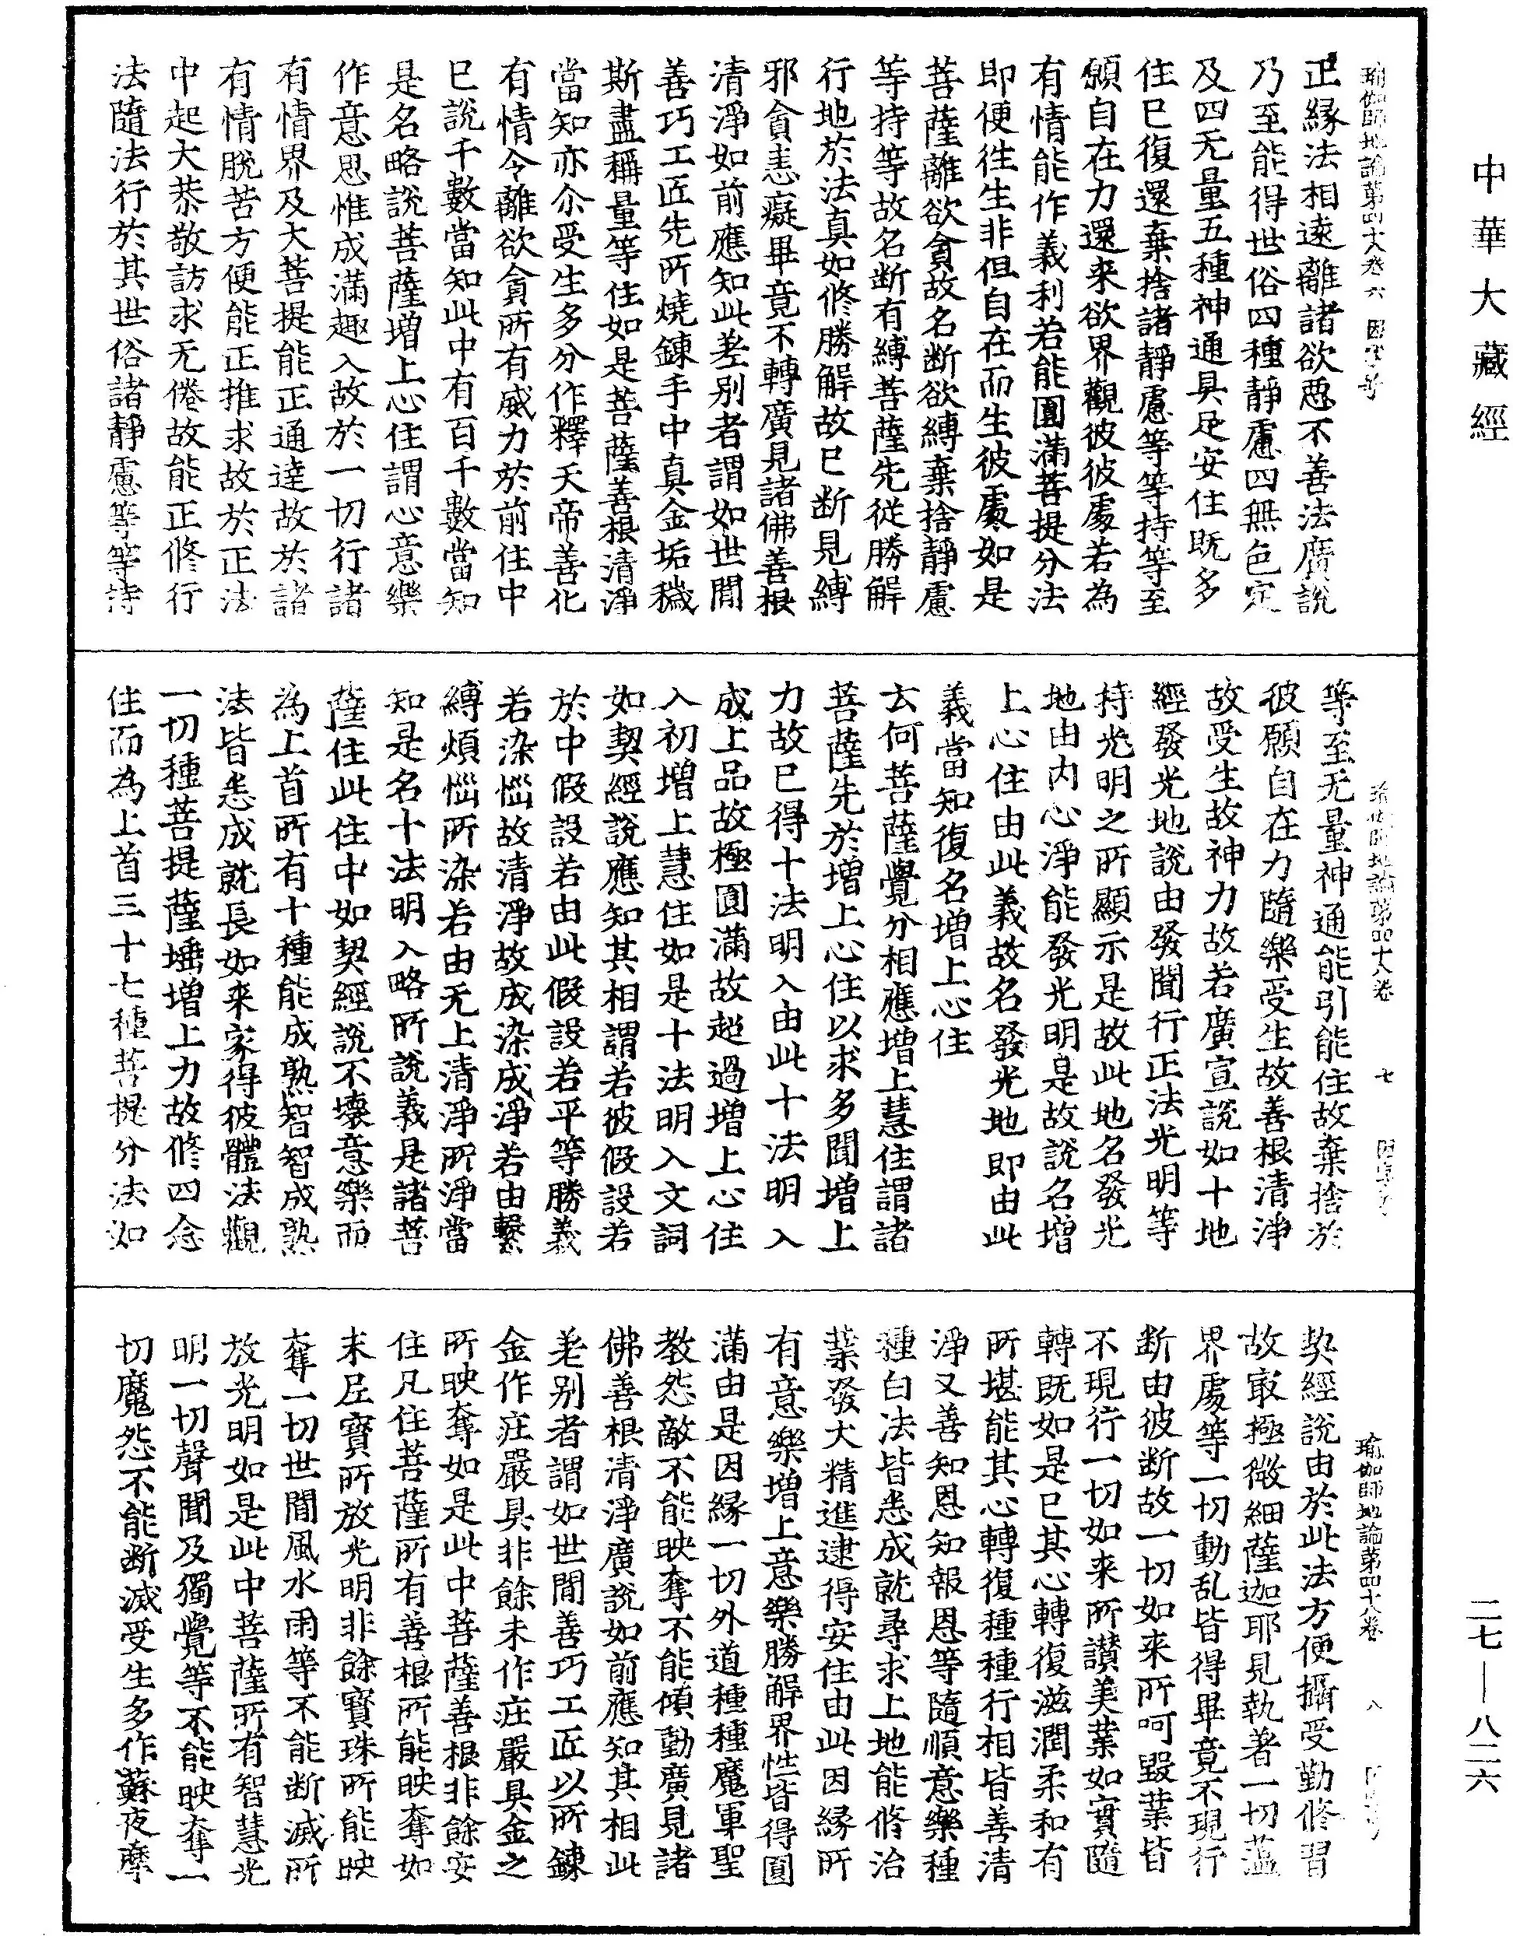 中華大藏經
瑜伽師地論第四十八卷 六
正緣法相遠離諸欲惡不善法廣說
乃至能得世俗四種靜慮四無色定
及四无量五種神通具足安住既多
住已復還棄捨諸靜慮等等持等至
願自在力還来欲界觀彼彼處若為
有情能作義利若能圓滿菩提分法
即便往生非但自在而生彼處如是
菩薩離欲貪故名斷欲縛棄捨靜慮
等持等故名斷有縛菩薩先從勝解
行地於法真如修勝解故已断見縛
邪貪恚癡畢竟不轉廣見諸佛善根
清淨如前應知此差別者謂如世閒
善巧工匠先所燒鍊手中真金垢穢
斯盡稱量等住如是菩薩善根清淨
當知亦尒受生多分作釋天帝善化
有情令離欲貪所有威力於前住中
已說千數當知此中有百千數當知
是名略說菩薩增上心住謂心意樂
作意思惟成滿趣入故於一切行諸
有情界及大菩提能正通達故於諸
有情脫苦方便能正推求故於正法
中起大恭敬訪求无倦故能正修行
法隨法行於其世俗諸靜慮等等持
瑜伽師地論第四十八卷 七
等至无量神通能引能住故棄捨於
彼願自在力隨樂受生故善根清淨
故受生故神力故若廣宣說如十地
經發光地說由發聞行正法光明等
持光明之所顯示是故此地名發光
地由內心淨能發光明是故說名增
上心住由此義故名發光地即由此
義當知復名增上心住
云何菩薩覺分相應增上慧住謂諸
菩薩先於增上心住以求多聞增上
力故已得十法明入由此十法明入
成上品故極圓滿故超過增上心住
入初增上慧住如是十法明入文詞
如契經說應知其相謂若彼假設若
於中假設若由此假設若平等勝義
若染惱故清淨故成染成淨若由繫
縛煩惱所染若由无上清淨所淨當
知是名十法明入略所說義是諸菩
薩住此住中如契經說不壞意樂而
為上首所有十種能成熟智智成熟
法皆悉成就長如来家得彼體法觀
一切種菩提薩埵增上力故修四念
住而為上首三十七種菩提分法如
瑜伽師地論第四十八卷 八
契經說由於此法方便攝受勤修習
故㝡極微細薩迦耶見執著一切蘊
界處等一切動乱皆得畢竟不現行
断由彼断故一切如来所呵毀業皆
不現行一切如来所讚美業如實隨
轉既如是已其心轉復滋潤柔和有
所堪能其心轉復種種行相皆善清
淨又善知恩知報恩等隨順意樂種
種白法皆悉成就尋求上地能修治
業發大精進逮得安住由此因緣所
有意樂增上意樂勝解界性皆得圓
滿由是因緣一切外道種種魔軍聖
教怨敵不能映奪不能傾動廣見諸
佛善根清淨廣說如前應知其相此
差别者謂如世閒善巧工匠以所鍊
金作莊嚴具非餘未作莊嚴具金之
所映奪如是此中菩薩善根非餘安
住凡住菩薩所有善根所能映奪如
末尼寶所放光明非餘寶珠所能映
奪一切世閒風水雨等不能断滅所
放光明如是此中菩薩所有智慧光
明一切聲聞及獨覺等不能映奪一
切魔怨不能断滅受生多作蘇夜摩
二七—八二六